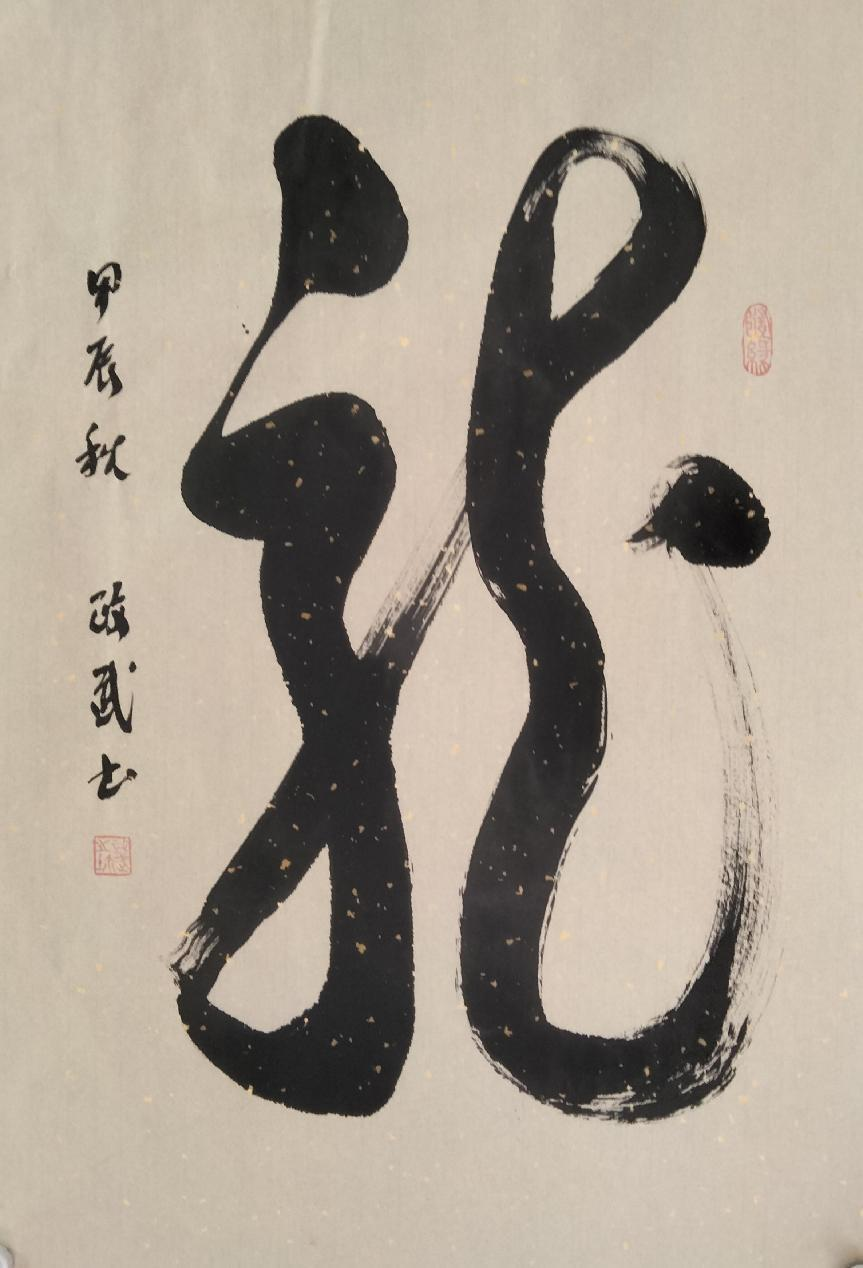 龍
甲辰秋 政武书